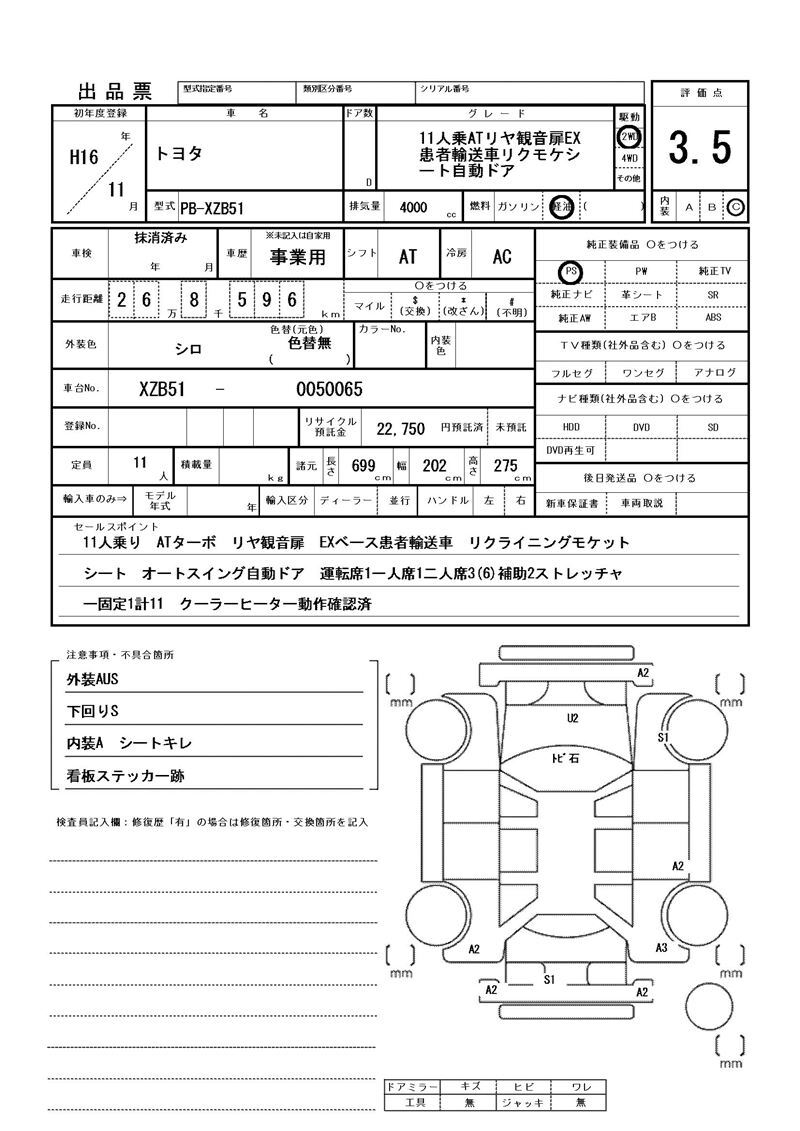 出品票 型式指定番号 類別区分番号 シリアル番号 評価点
初年度登録 車名 ドア数 グレード 駆動
H16年 11月 トヨタ D 2WD 4WD その他 3.5
11人乗ATリヤ観音扉EX
患者輸送車リクモケシ
ート自動ドア
型式 PB-XZB51 排気量 4000 cc 燃料 ガソリン 軽油 ( ) 内装 A B C
車検 抹消済み 年 月 車歴 ※未記入は自家用 事業用 シフト AT 冷房 AC 純正装備品 〇をつける
PS PW 純正TV
走行距離 26万 8千 596 km 〇をつける
マイル $(交換) *(改ざん) #(不明)
純正ナビ 革シート SR
純正AW エアB ABS
外装色 シロ 色替(元色) 色替無 ( ) カラーNo. 内装色
TV種類(社外品含む) 〇をつける
フルセグ ワンセグ アナログ
車台No. XZB51 - 0050065
ナビ種類(社外品含む) 〇をつける
登録No. リサイクル預託金 22,750 円預託済 未預託
HDD DVD SD
DVD再生可
定員 11人 積載量 kg 諸元 長さ 699 cm 幅 202 cm 高さ 275 cm
後日発送品 〇をつける
輸入車のみ⇒ モデル年式 年 輸入区分 ディーラー 並行 ハンドル 左 右 新車保証書 車両取説
セールスポイント
11人乗り ATターボ リヤ観音扉 EXベース患者輸送車 リクライニングモケット
シート オートスイング自動ドア 運転席1一人席1二人席3(6)補助2ストレッチャ
ー固定1計11 クーラーヒーター動作確認済
注意事項・不具合箇所
外装AUS
下回りS
内装A シートキレ
看板ステッカー跡
検査員記入欄：修復歴「有」の場合は修復箇所・交換箇所を記入
A2
[ ] mm
[ ] mm
U2
S1
トビ石
A2
A2
A3
[ ] mm
[ ] mm
S1
A2
A2
[ ] mm
ドアミラー キズ ヒビ ワレ
工具 無 ジャッキ 無